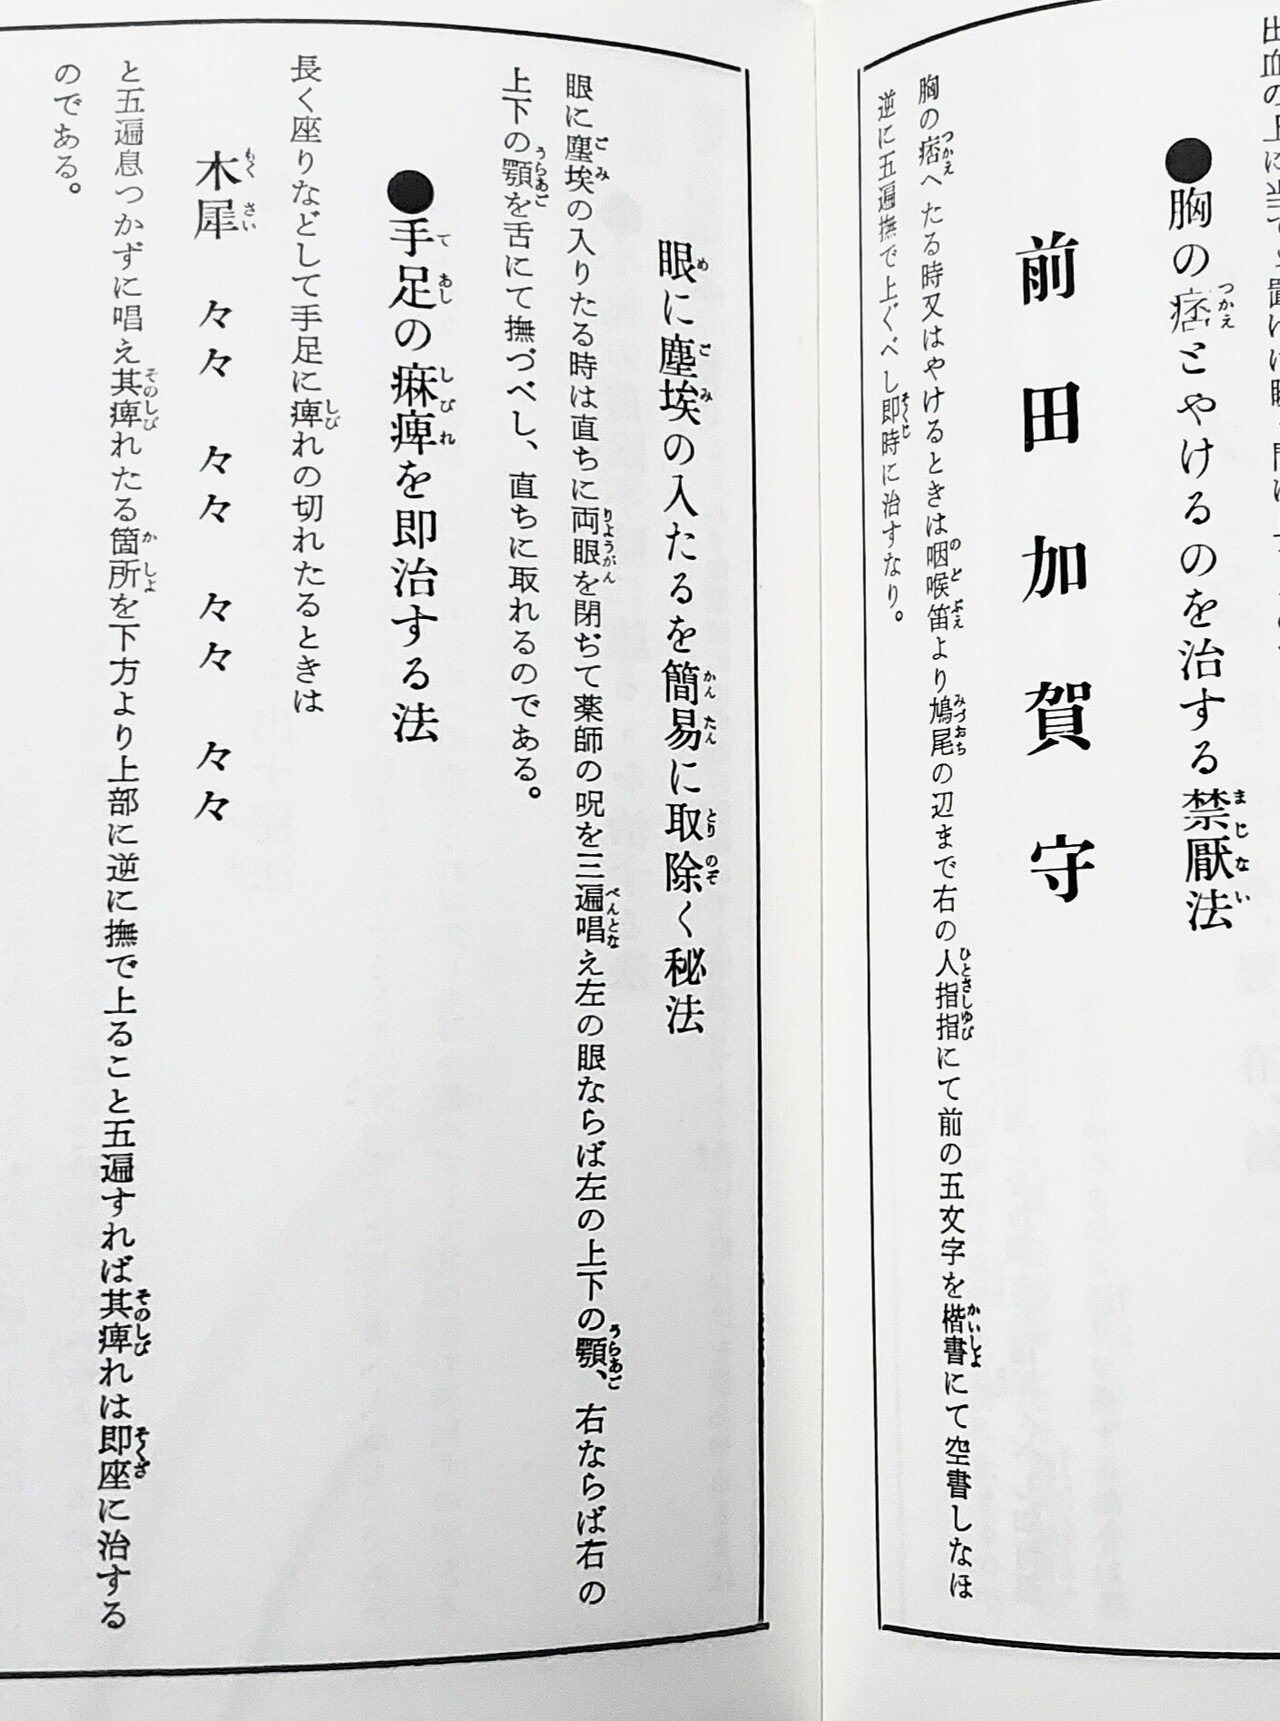 ●胸の痞とやけるのを治する禁厭法
前田加賀守
胸の痞へたる時又はやけるときは咽喉笛より鳩尾の辺まで右の人指指にて前の五文字を楷書にて空書しなほ
逆に五遍撫で上ぐべし即時に治すなり。
眼に塵埃の入たるを簡易に取除く秘法
眼に塵埃の入りたる時は直ちに両眼を閉ぢて薬師の呪を三遍唱え左の眼ならば左の上下の顎、右ならば右の
上下の顎を舌にて撫づべし、直ちに取れるのである。
●手足の痳痺を即治する法
長く座りなどして手足に痺れの切れたるときは
木犀 々々 々々 々々 々々
と五遍息つかずに唱え其痺れたる箇所を下方より上部に逆に撫で上ること五遍すれば其痺れは即座に治する
のである。